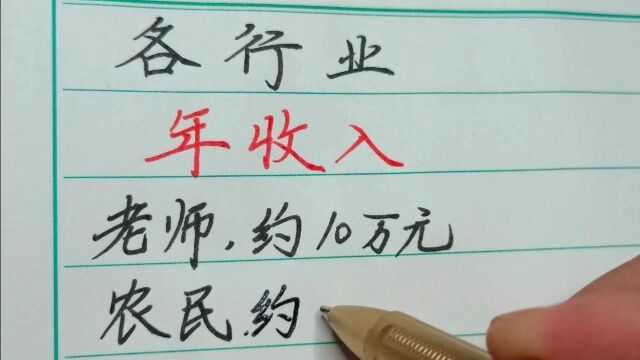 各行业
年收入
老师,约10万元
农民.约